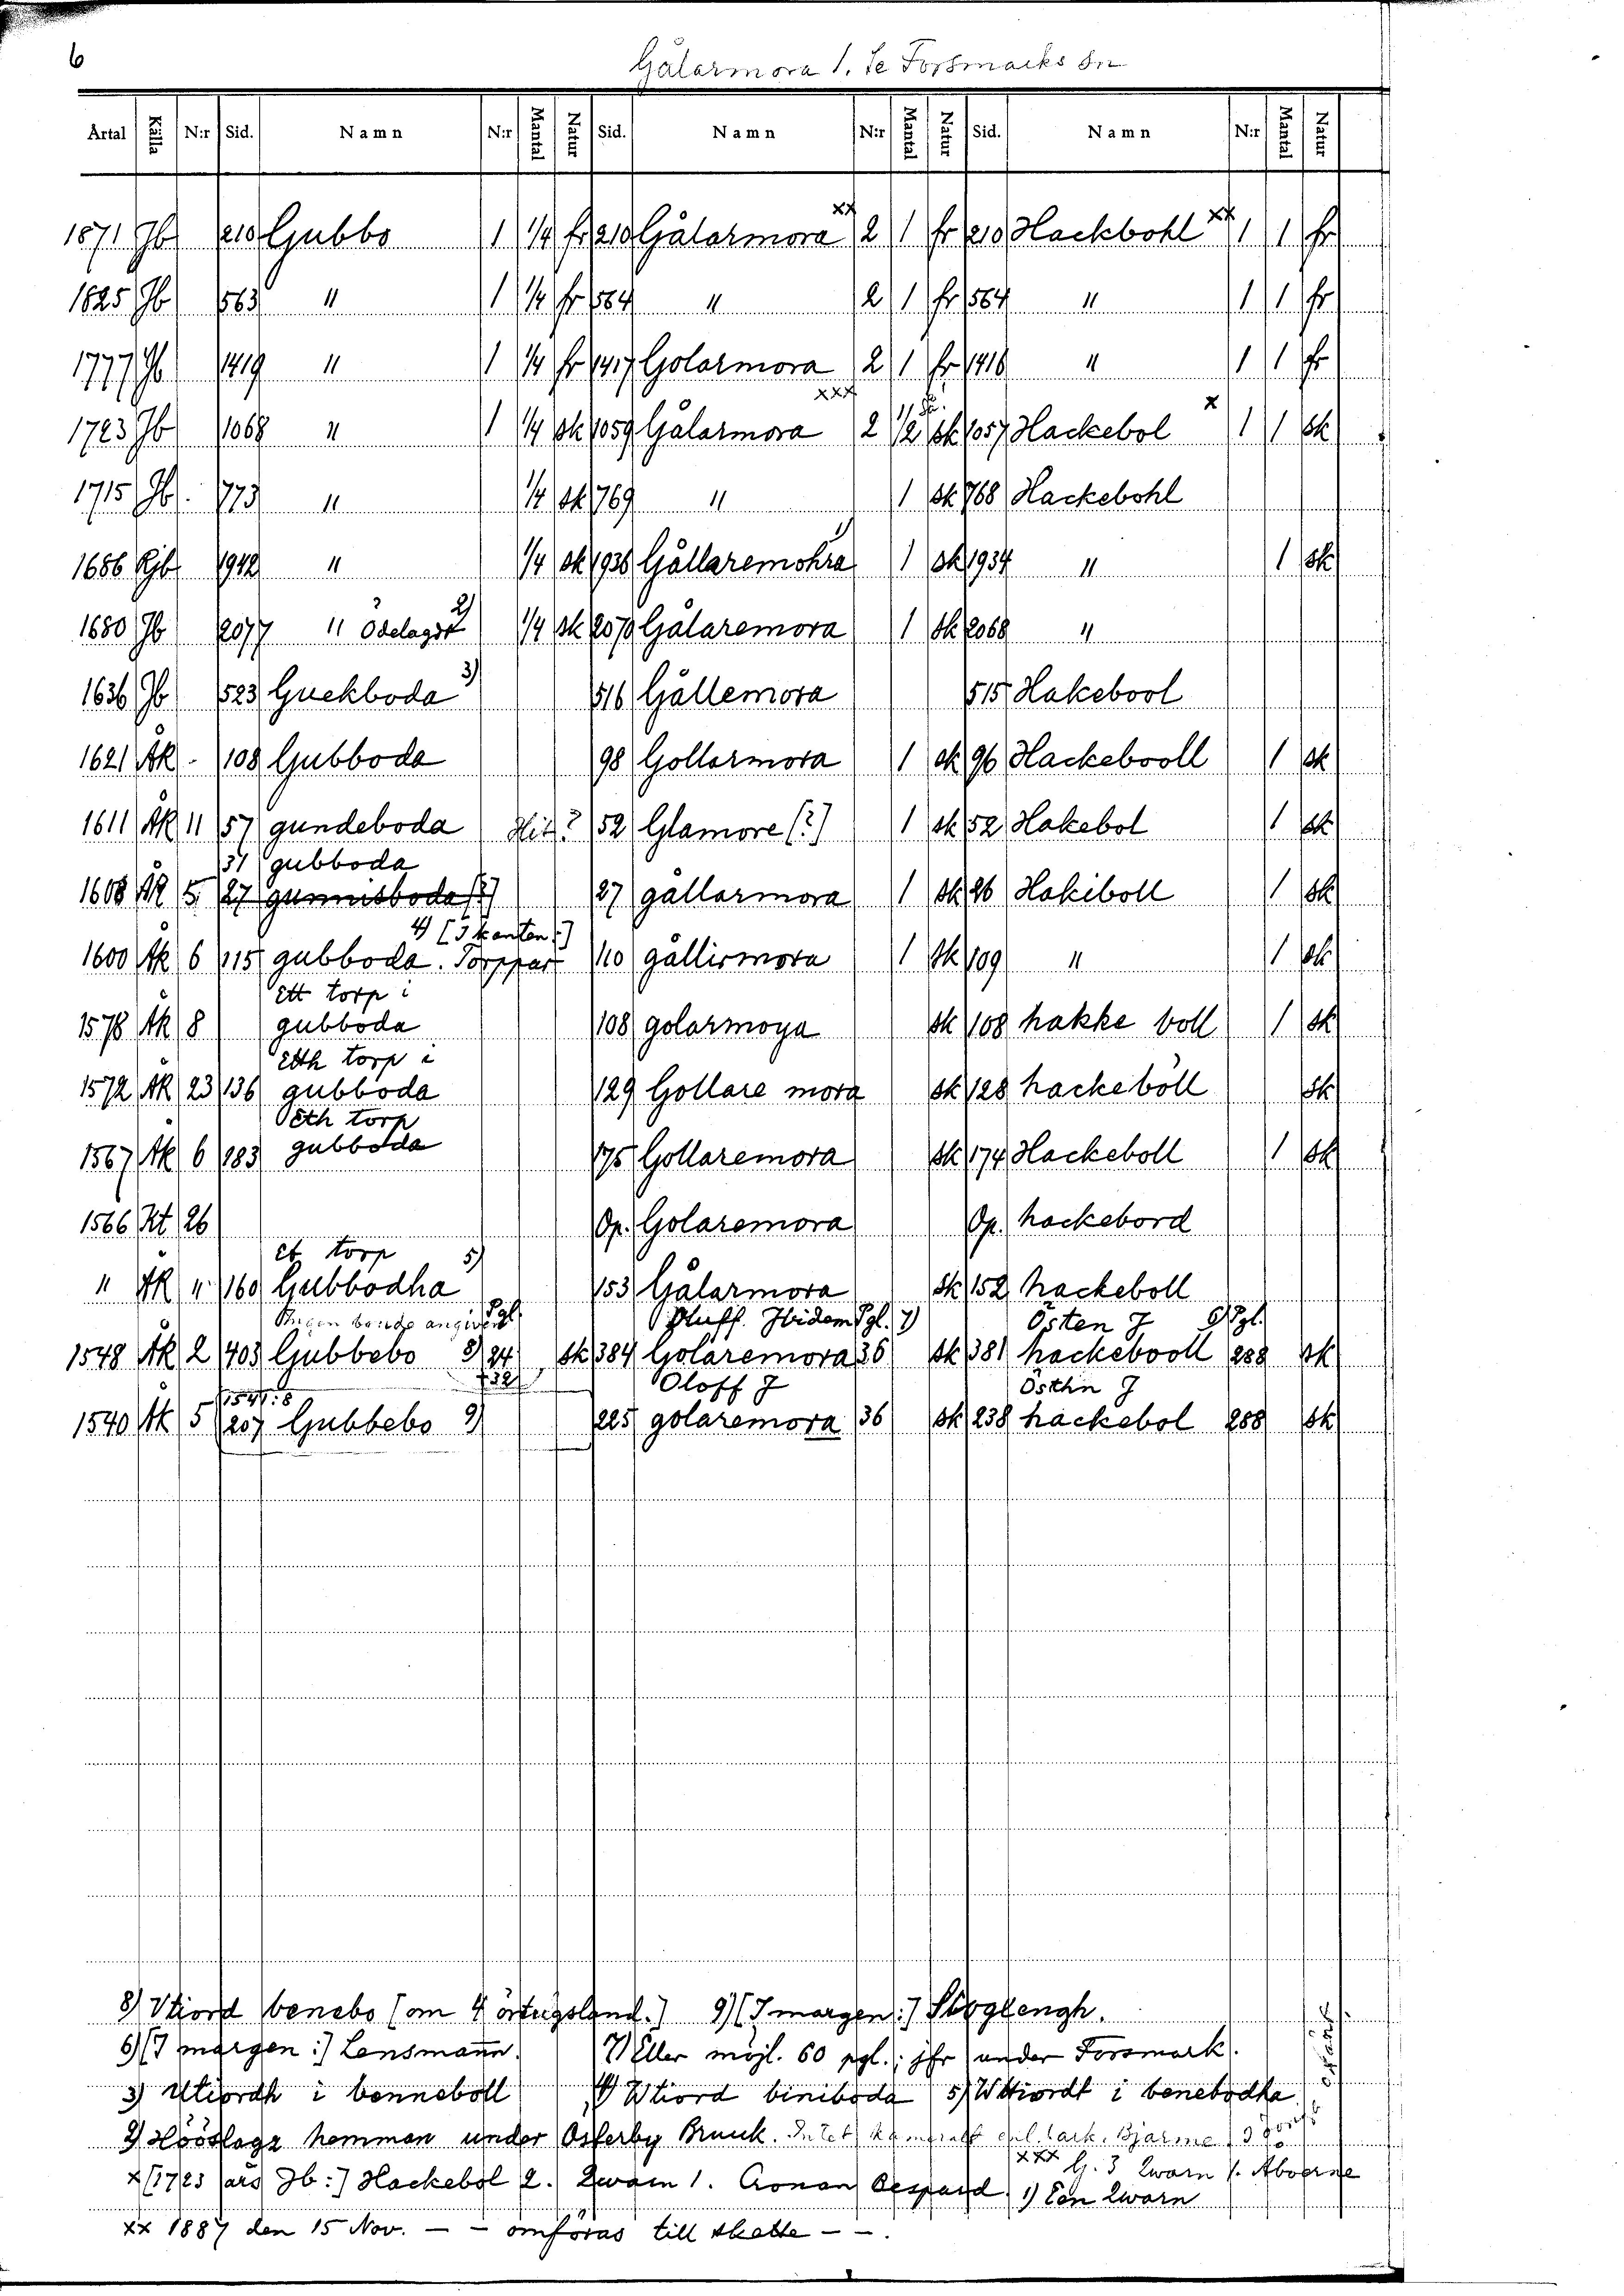 6
Gålarmora 1. Se Forsmarks sn
Årtal Källa N:r Sid. Namn N:r Mantal Natur Sid. Namn N:r Mantal Natur Sid. Namn N:r Mantal Natur
1871 Jb 210 Gubbo 1 1/4 fr 210 Gålarmora xx 2 1 fr 210 Hackbohl xx 1 1 fr
1825 Jb 563 " 1 1/4 fr 564 " 2 1 fr 564 " 1 1 fr
1777 Jb 1419 " 1 1/4 fr 1417 Golarmora 2 1 fr 1416 " 1 1 fr
1723 Jb 1068 " 1 1/4 sk 1059 Gålarmora xxx 2 1/2 sk 1057 Hackebol x 1 1 sk
1715 Jb. 773 " 1/4 sk 769 " 1 sk 768 Hackebohl
1686 Rjb 1942 " 1/4 sk 1936 Gållaremohra 1) 1 sk 1934 " 1 sk
1680 Jb 2077 " Ödelagdt 2) 1/4 sk 2070 Gålaremora 1 sk 2068 "
1636 Jb 523 Guckboda 3) 516 Gållemora 515 Hakebool
1621 Åk - 108 Gubboda 98 Gollarmora 1 sk 96 Hackebooll 1 sk
1611 Åk 11 57 gundeboda Hit? 52 Glamore [?] 1 sk 52 Hakebol 1 sk
31 gubboda
1608 Åk 5 27 gunnisboda [?] 27 gållarmora 1 sk 26 Hakiboll 1 sk
4) [I kanten:]
1600 Åk 6 115 gubboda. Torppar 110 gållirmora 1 sk 109 " 1 sk
Ett torp i
1578 Åk 8 gubboda 108 golarmoya sk 108 hakke boll 1 sk
Etth torp i
1572 Åk 23 136 gubboda 129 Gollare mora sk 128 hackeböll sk
Eth torp
1567 Åk 6 183 gubboda 175 Gollaremora sk 174 Hackeboll 1 sk
1566 Kt 26 Op. Golaremora Op. hackebord
et torp 5)
" Åk " 160 Gubbodha 153 Gålarmora sk 152 hackeboll
Ingen bonde angiven Pgl. Oluff. Ibidem Pgl. 7) Östen J 6) Pgl.
1548 Åk 2 403 Gubbebo 8) 24 sk 384 Golaremora 36 sk 381 hackebooll 288 sk
1541:8 +32 Oloff J Östhn J
1540 Åk 5 207 Gubbebo 9) 225 golaremora 36 sk 238 hackebol 288 sk
8) Vtiord benebo [om 4 örtugsland.] 9) [I margen:] Skoglengh.
6) [I margen:] Lensmann. 7) Eller möjl. 60 pgl.; jfr under Forsmark.
3) Utiordh i benneboll 4) Wtiord biniboda 5) Wttiordt i benebodha
2) Höörlage hemman under Österby Bruuk.
xxx G. 3 Qwarn 1.
x [1723 års Jb:] Hackebol 2. Qwarn 1. Cronan Oespard 1) Een Qwarn
xx 1887 den 15 Nov. — — omföras till skatte — —.